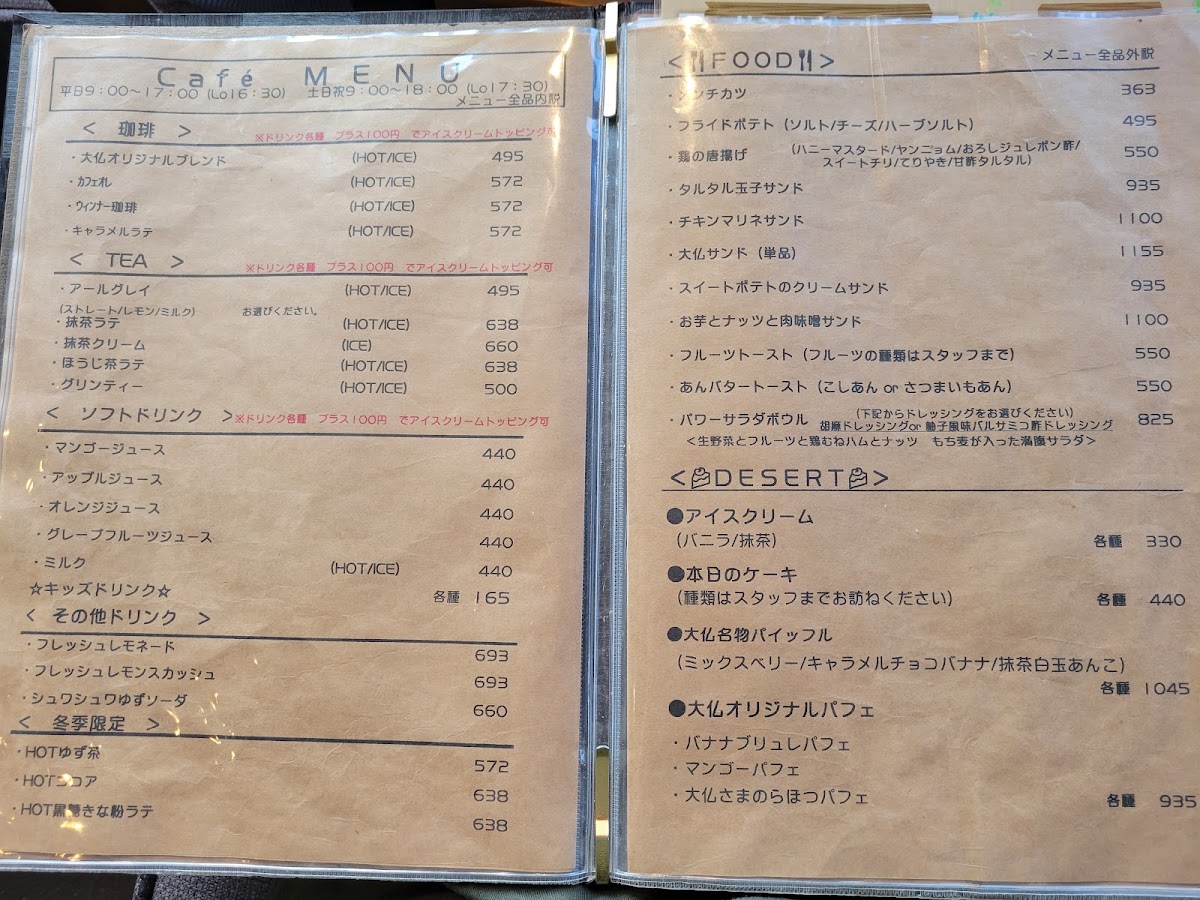 Café MENU
平日9:00〜17:00 (Lo16:30) 土日祝9:00〜18:00 (Lo17:30)
メニュー全品内税
< 珈琲 > ※ドリンク各種 プラス100円 でアイスクリームトッピング可
・大仏オリジナルブレンド (HOT/ICE) 495
・カフェオレ (HOT/ICE) 572
・ウィンナー珈琲 (HOT/ICE) 572
・キャラメルラテ (HOT/ICE) 572
< TEA > ※ドリンク各種 プラス100円 でアイスクリームトッピング可
・アールグレイ (HOT/ICE) 495
(ストレート/レモン/ミルク) お選びください。
・抹茶ラテ (HOT/ICE) 638
・抹茶クリーム (ICE) 660
・ほうじ茶ラテ (HOT/ICE) 638
・グリンティー (HOT/ICE) 500
< ソフトドリンク > ※ドリンク各種 プラス100円 でアイスクリームトッピング可
・マンゴージュース 440
・アップルジュース 440
・オレンジジュース 440
・グレープフルーツジュース 440
・ミルク (HOT/ICE) 440
☆キッズドリンク☆ 各種 165
< その他ドリンク >
・フレッシュレモネード 693
・フレッシュレモンスカッシュ 693
・シュワシュワゆずソーダ 660
< 冬季限定 >
・HOTゆず茶 572
・HOTココア 638
・HOT黒糖きな粉ラテ 638
<FOOD> メニュー全品外税
・メンチカツ 363
・フライドポテト (ソルト/チーズ/ハーブソルト) 495
・鶏の唐揚げ (ハニーマスタード/ヤンニョム/おろしジュレポン酢/ 550
スイートチリ/てりやき/甘酢タルタル)
・タルタル玉子サンド 935
・チキンマリネサンド 1100
・大仏サンド (単品) 1155
・スイートポテトのクリームサンド 935
・お芋とナッツと肉味噌サンド 1100
・フルーツトースト (フルーツの種類はスタッフまで) 550
・あんバタートースト (こしあん or さつまいもあん) 550
・パワーサラダボウル (下記からドレッシングをお選びください) 825
胡麻ドレッシングor 柚子風味バルサミコ酢ドレッシング
<生野菜とフルーツと鶏むねハムとナッツ もち麦が入った満腹サラダ>
<DESERT>
●アイスクリーム
(バニラ/抹茶) 各種 330
●本日のケーキ
(種類はスタッフまでお訪ねください) 各種 440
●大仏名物パイッフル
(ミックスベリー/キャラメルチョコバナナ/抹茶白玉あんこ)
各種 1045
●大仏オリジナルパフェ
・バナナブリュレパフェ
・マンゴーパフェ
・大仏さまのらほつパフェ 各種 935